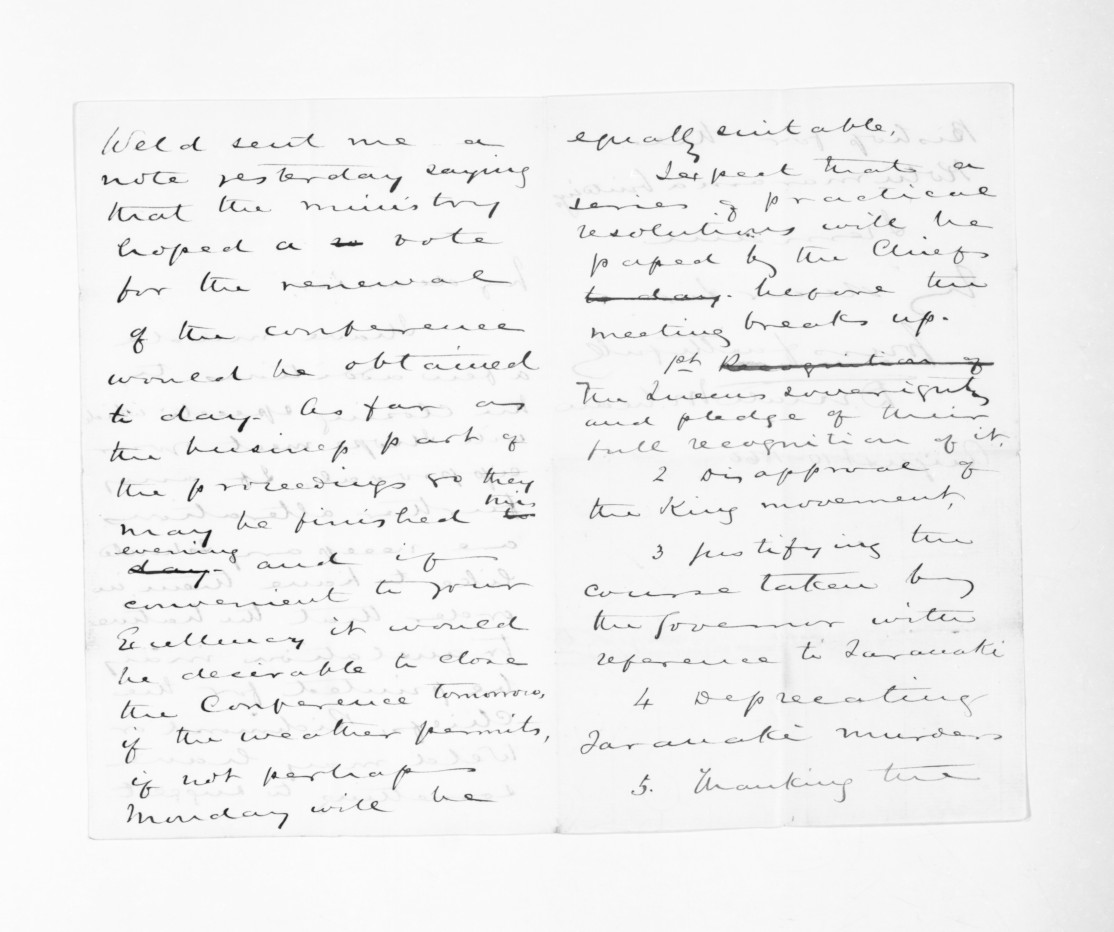 Weld sent me a
note yesterday saying
that the ministry
hoped a vote
for the renewal
of the conference
would be obtained
to day. As far as
the business part of
the proceedings go they
may be finished to this
day. evening and if
convenient to your
Excellency it would
be desirable to close
the Conference tomorrow,
if the weather permits,
if not perhaps
Monday will be
equally suitable.
I expect that a
series of practical
resolutions will be
passed by the Chiefs
to day. before the
meeting breaks up.
1st Recognition of
The Queens sovereignty
and pledge of their
full recognition of it.
2 Disapproval of
the King movement,
3 Justifying the
course taken by
the Governor with
reference to Taranaki
4 Deprecating
Taranaki murders
5. Thanking the